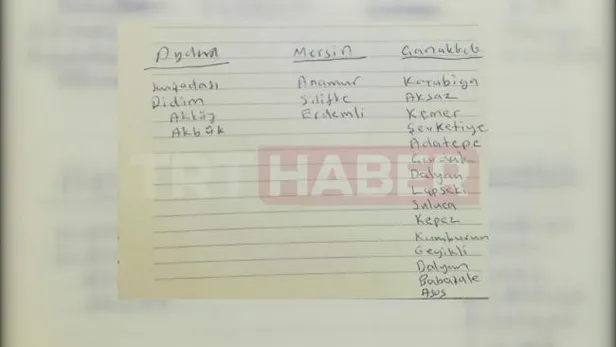 Aydın
Kuşadası
Didim
Akköy
Akbük
Mersin
Anamur
Silifke
Erdemli
Çanakkale
Karabiga
Aksaz
Kemer
Şevketiye
Adatepe
Dalyan
Lapseki
Suluca
Kepez
Kumburun
Geyikli
Dalyan
Babakale
Asos
TRT HABER